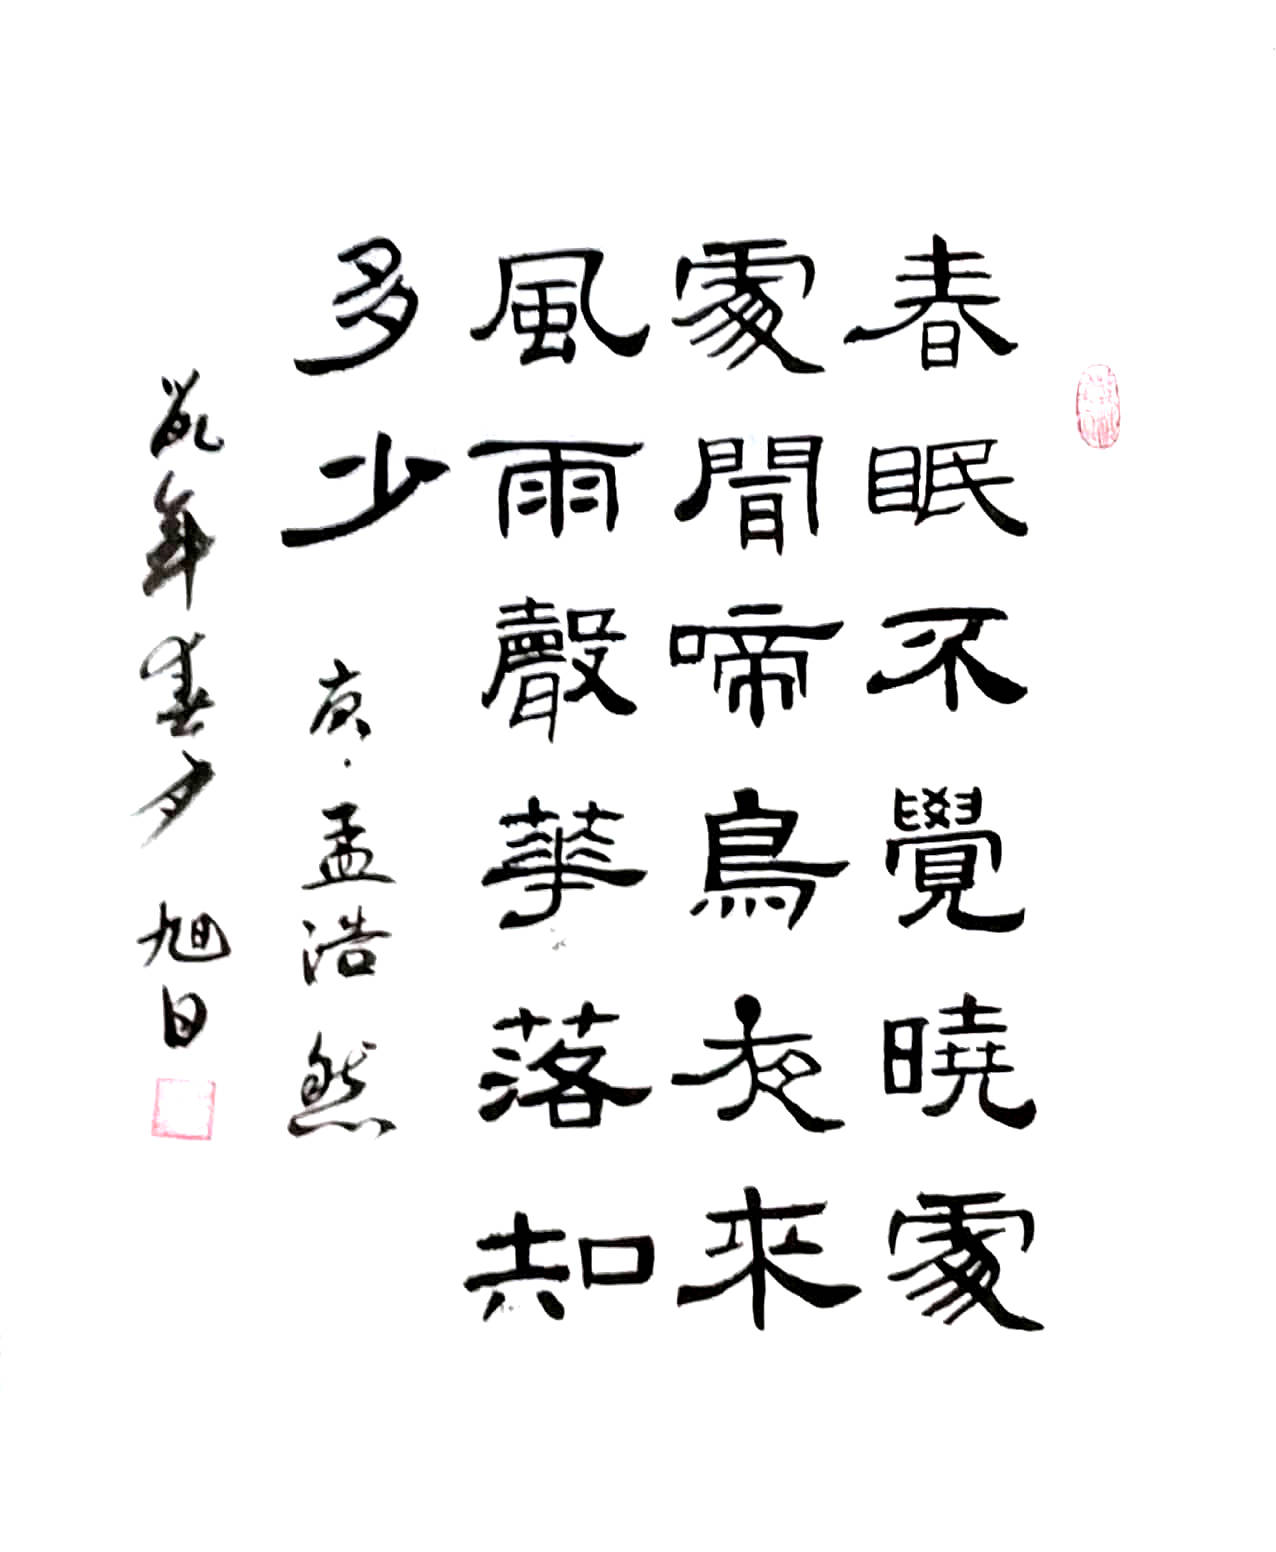 春眠不覺曉處
處間啼鳥夜來
風雨聲華落知
多少 唐·孟浩然
鼠年春夕 旭日